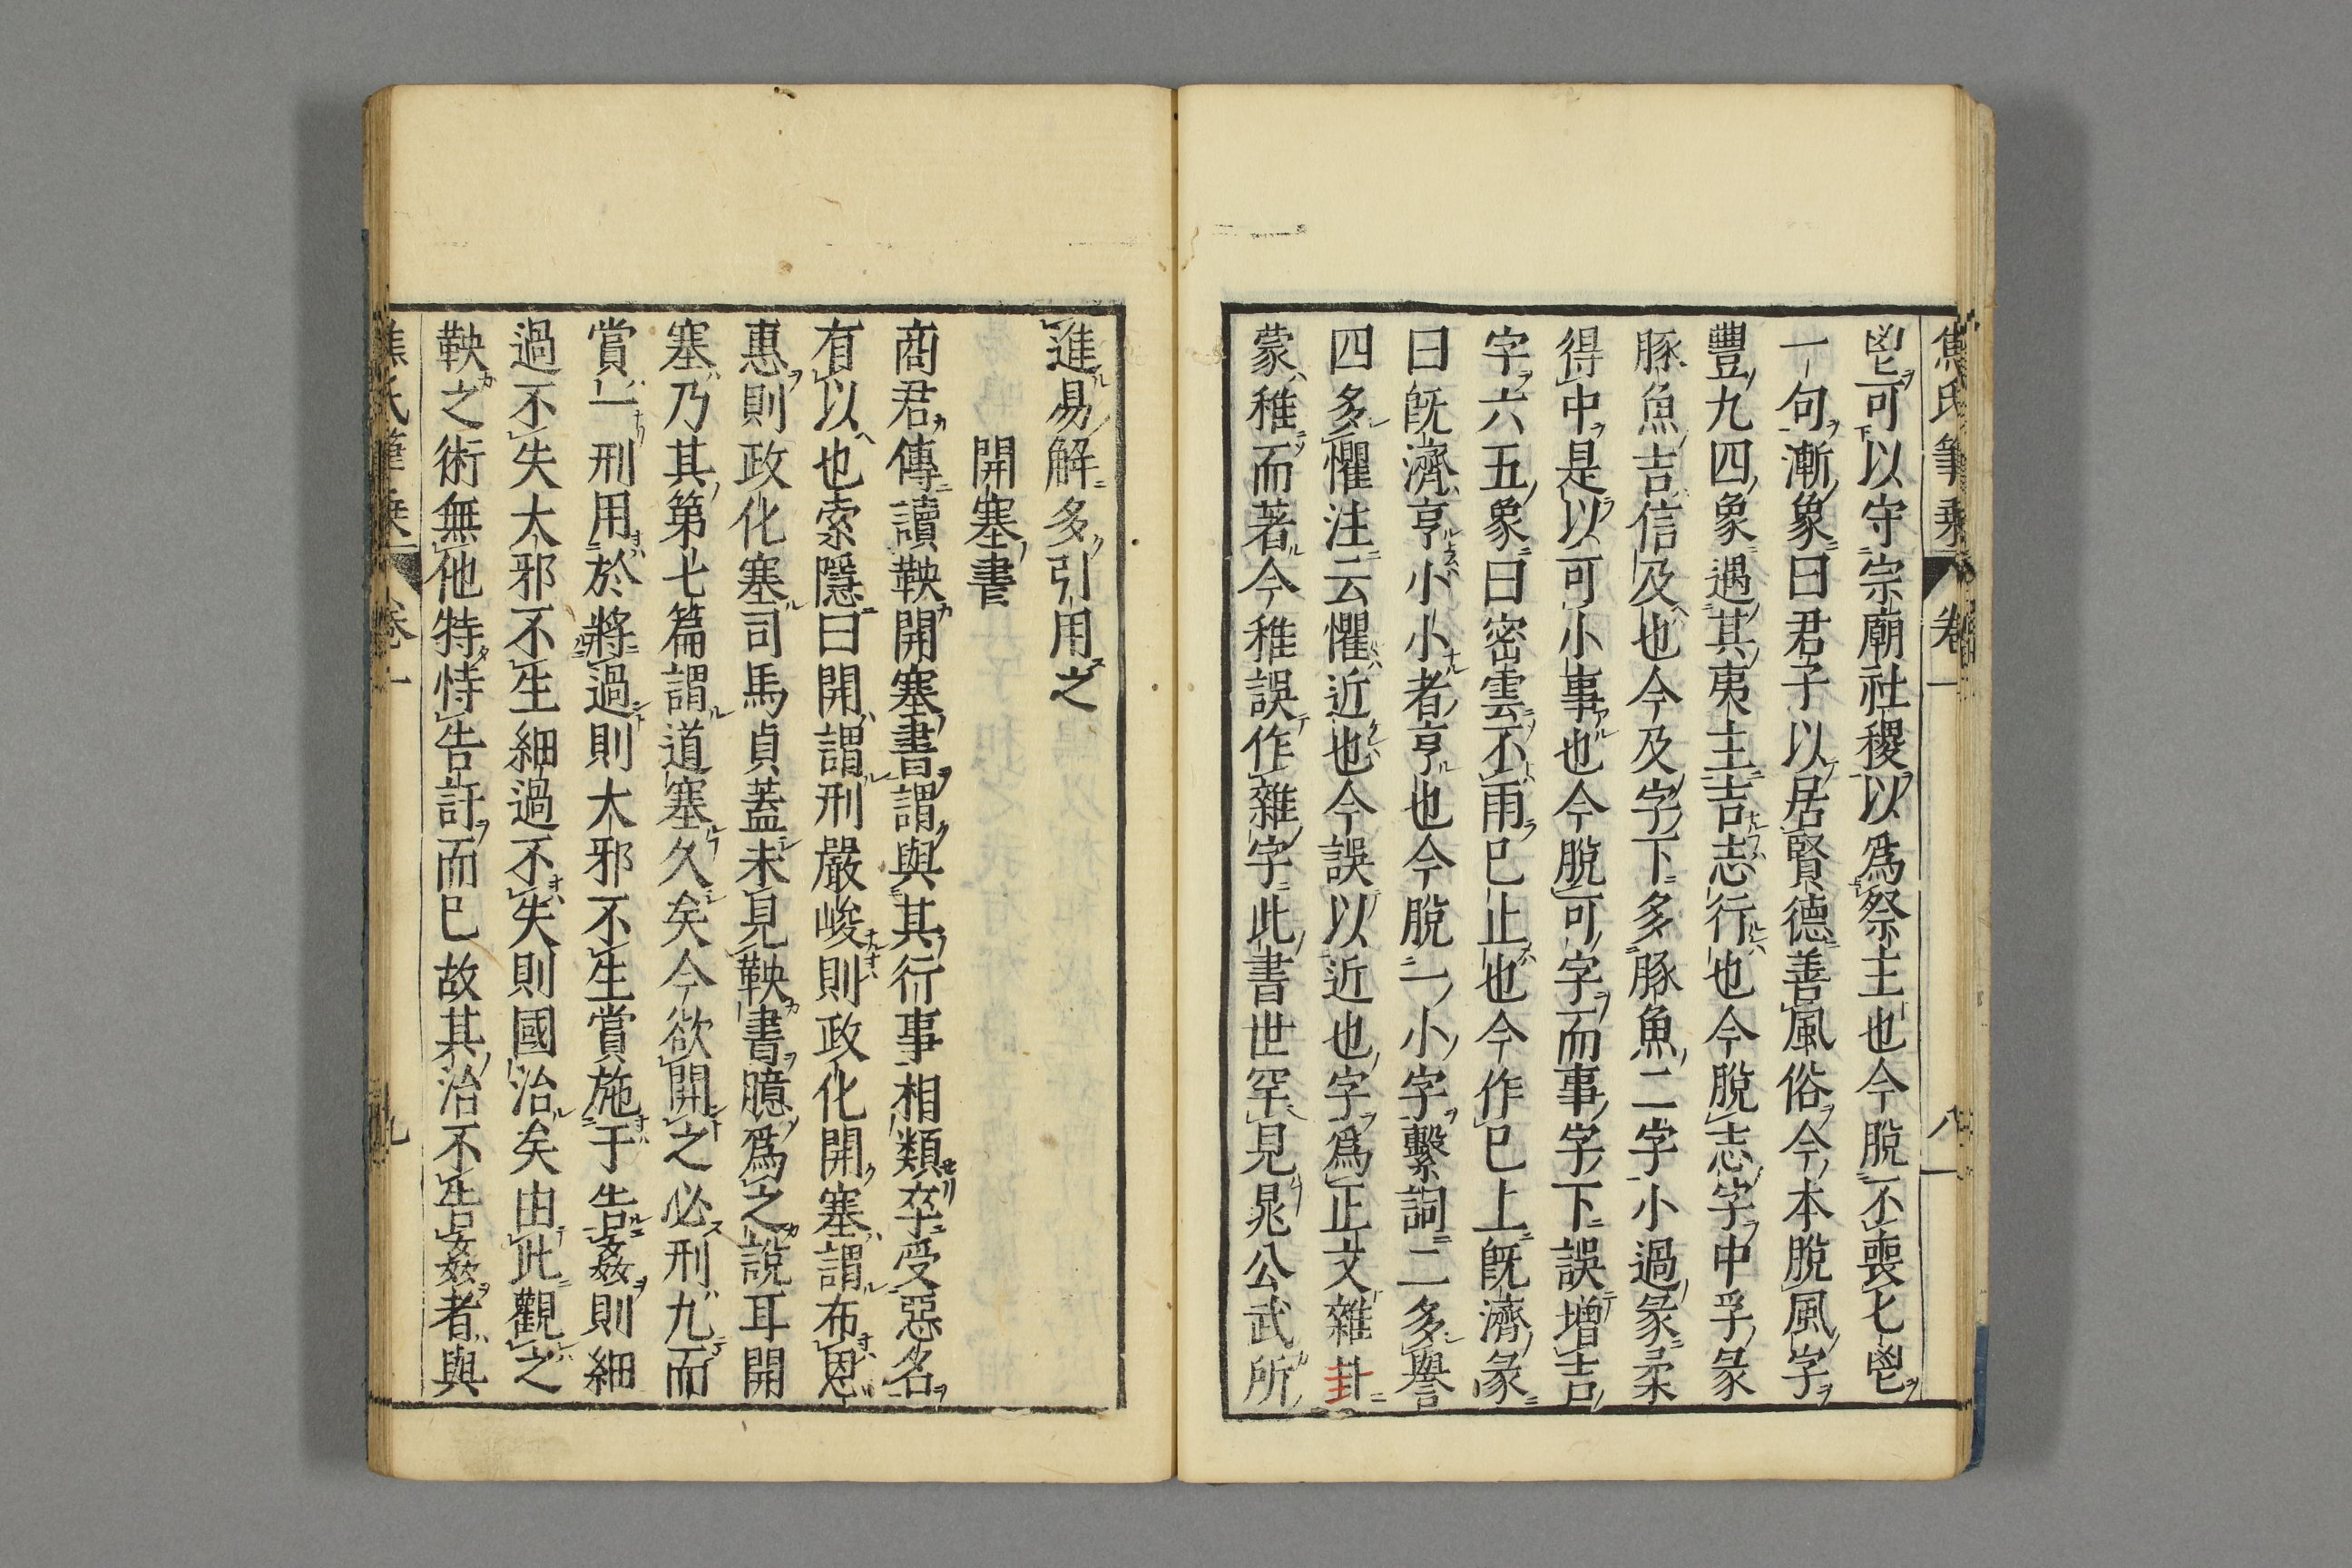 焦氏筆乘 卷一 八
鬯可以守宗廟社稷以爲祭主也今脫不喪匕鬯
一句漸象曰君子以居賢德善風俗今本脫風字
豐九四象遇其夷主吉志行也今脫志字中孚彖
豚魚吉信及也今及字下多豚魚二字小過彖柔
得中是以可小事也今脫可字而事字下誤增吉
字六五象曰密雲不雨已止也今作已上既濟彖
曰既濟亨小小者亨也今脫一小字繫詞二多譽
四多懼注云懼近也今誤以近也字爲正文雜卦
蒙稚而著今稚誤作雜字此書世罕見晁公武所
進易解多引用之
開塞書
商君傳讀鞅開塞書謂與其行事相類卒受惡名
有以也索隱曰開謂刑嚴峻則政化開塞謂布恩
惠則政化塞司馬貞蓋未見鞅書臆爲之說耳開
塞乃其第七篇謂道塞久矣今欲開之必刑九而
賞一刑用於將過則大邪不生賞施于告姦則細
過不失大邪不生細過不失則國治矣由此觀之
鞅之術無他特恃告訐而已故其治不告姦者與
焦氏筆乘 卷一 九